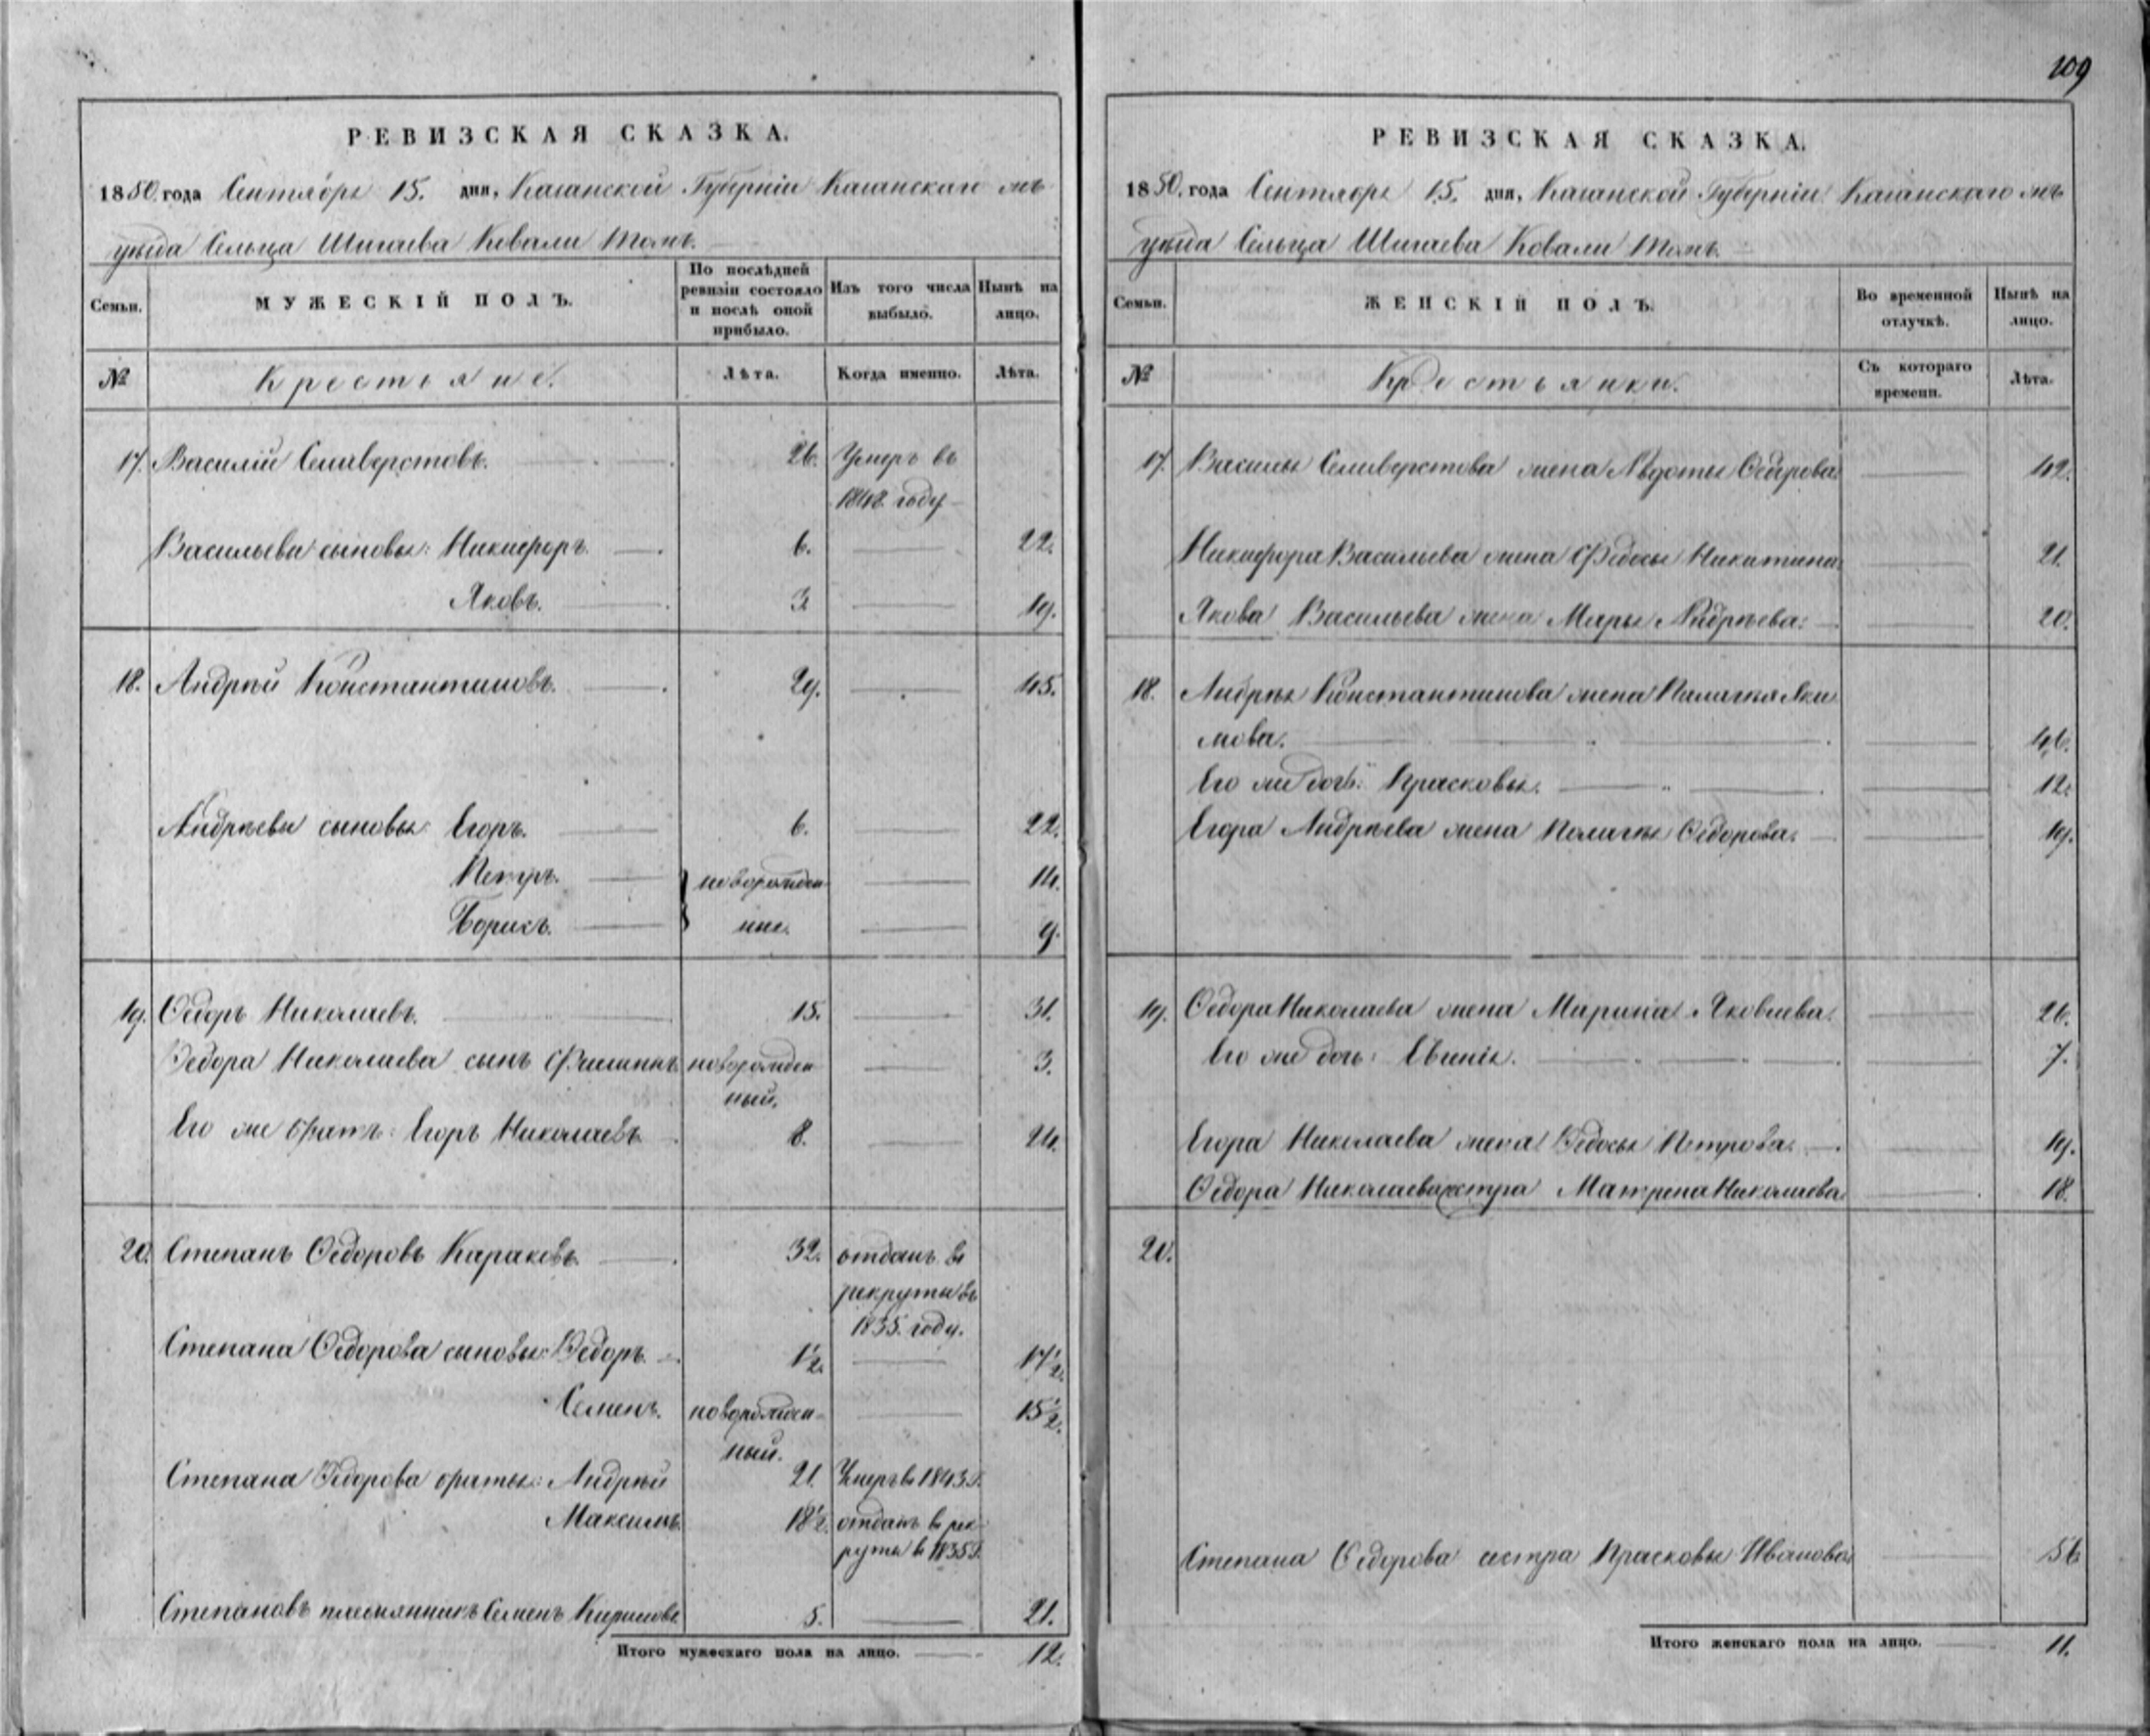 109
РЕВИЗСКАЯ СКАЗКА.
1850 года Сентября 15. дня, Казанской Губерніи Казанскаго
уѣзда Сельца Шигаева Ковали тожъ.
Семьи.
МУЖЕСКІЙ ПОЛЪ.
По послѣдней ревизіи состояло и послѣ оной прибыло.
Изъ того числа выбыло.
Нынѣ на лицо.
№
Крестьяне.
Лѣта.
Когда именно.
Лѣта.
17. Василій Селиверстовъ. 26. Умеръ въ
1848 году
Васильевы сыновья: Никифоръ. 6. 22.
Яковъ. 3 19.
18. Андрѣй Константиновъ. 29. 45.
Андрѣевы сыновья: Егоръ. 6. 22.
Петръ. новорожден 14.
Борисъ. ные. 9.
19. Ѳедоръ Николаевъ. 15. 31.
Ѳедора Николаева сынъ новорожден 3.
ный.
Его же братъ: Егоръ Николаевъ 8. 24.
20. Степанъ Ѳедоровъ 32. отданъ въ
рекруты въ
1835. году.
Степана Ѳедорова сыновья: Ѳедоръ. 1½. 17½.
Семенъ. новорожден- 15½.
ный.
Степана Ѳедорова братья: Андрѣй 21. Умеръ в 1843 г.
Максимъ. 18½. отданъ в рек-
руты в 1835 г.
Степановъ племянникъ Семенъ Кириловъ 5. 21.
Итого мужескаго пола на лицо. 12.
РЕВИЗСКАЯ СКАЗКА.
1850. года Сентября 15. дня, Казанской Губерніи Казанскаго
уѣзда Сельца Шигаева Ковали тожъ.
Семьи.
ЖЕНСКІЙ ПОЛЪ.
Во временной отлучкѣ.
Нынѣ на лицо.
№
Крестьянки.
Съ котораго времени.
Лѣта.
17. Василья Селиверстова жена Авдотья Ѳедорова 42.
Никифора Васильева жена Федосья Никитина 21.
Якова Васильева жена Марья Андрѣева. 20.
18. Андрѣя Константинова жена Палагея Яки
мова. 46.
Его же дочь: Прасковья. 12.
Егора Андрѣева жена Пелагѣя Ѳедорова. 19.
19. Ѳедора Николаева жена Марина Яковлева. 26.
Его же дочь: 7.
Егора Николаева жена Ѳедосья Петрова. 19.
Ѳедора Николаева сестра Матрена Николаева 18.
20.
Степана Ѳедорова сестра Прасковья Иванова 56
Итого женскаго пола на лицо. 11.